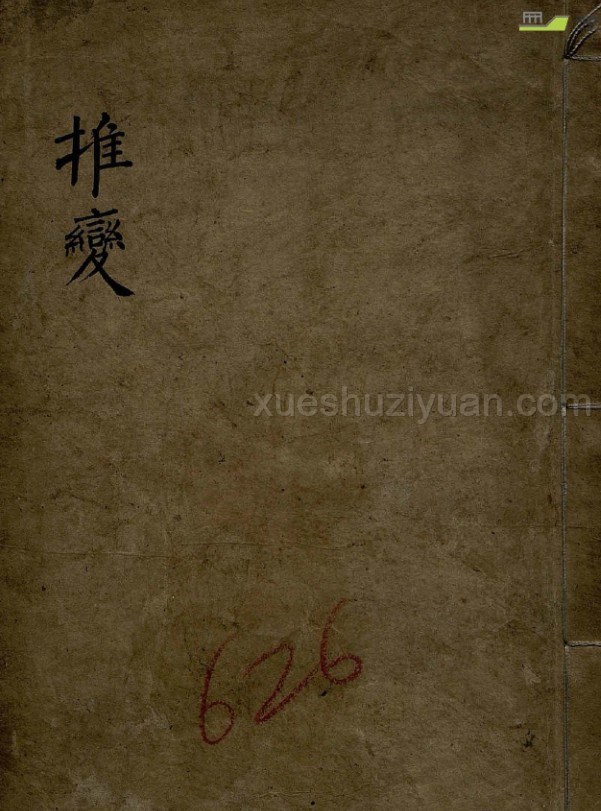 推變
xueshuziyuan.com
626